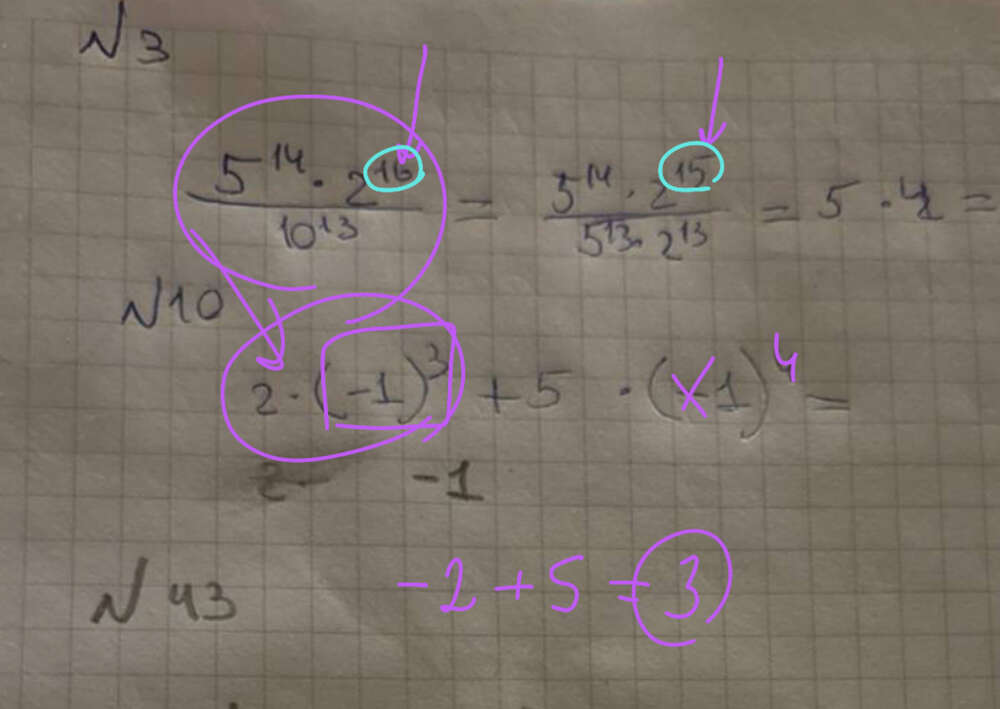 №3
5^14 · 2^16 / 10^13 = 5^14 · 2^15 / 5^13 · 2^13 = 5 · 4 =
№10
2 · (-1)^3 + 5 · (-1)^4 =
2 -1
-2 + 5 = 3
№43